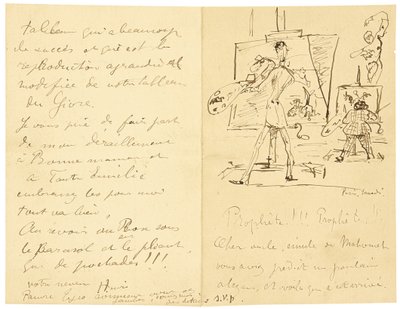 tableau qui a beaucoup
de succès et qui est la
reproduction agrandie et
modifiée de votre tableau
du Givre.
Je vous prie de faire part
de mon déraillement
à Bonne maman et
à Tante Amélie
embrassez les pour moi
tout va bien,
Au revoir au Bosc sous
le parasol et le pliant,
que de pochades!!!
votre neveu Henri
Pauvre
S.V.P.
Paris, Samedi
Prophète!!! Prophète!!
Cher oncle, émule de Mahomet
vous aviez prédit un printanier
et voilà que c'est arrivé.